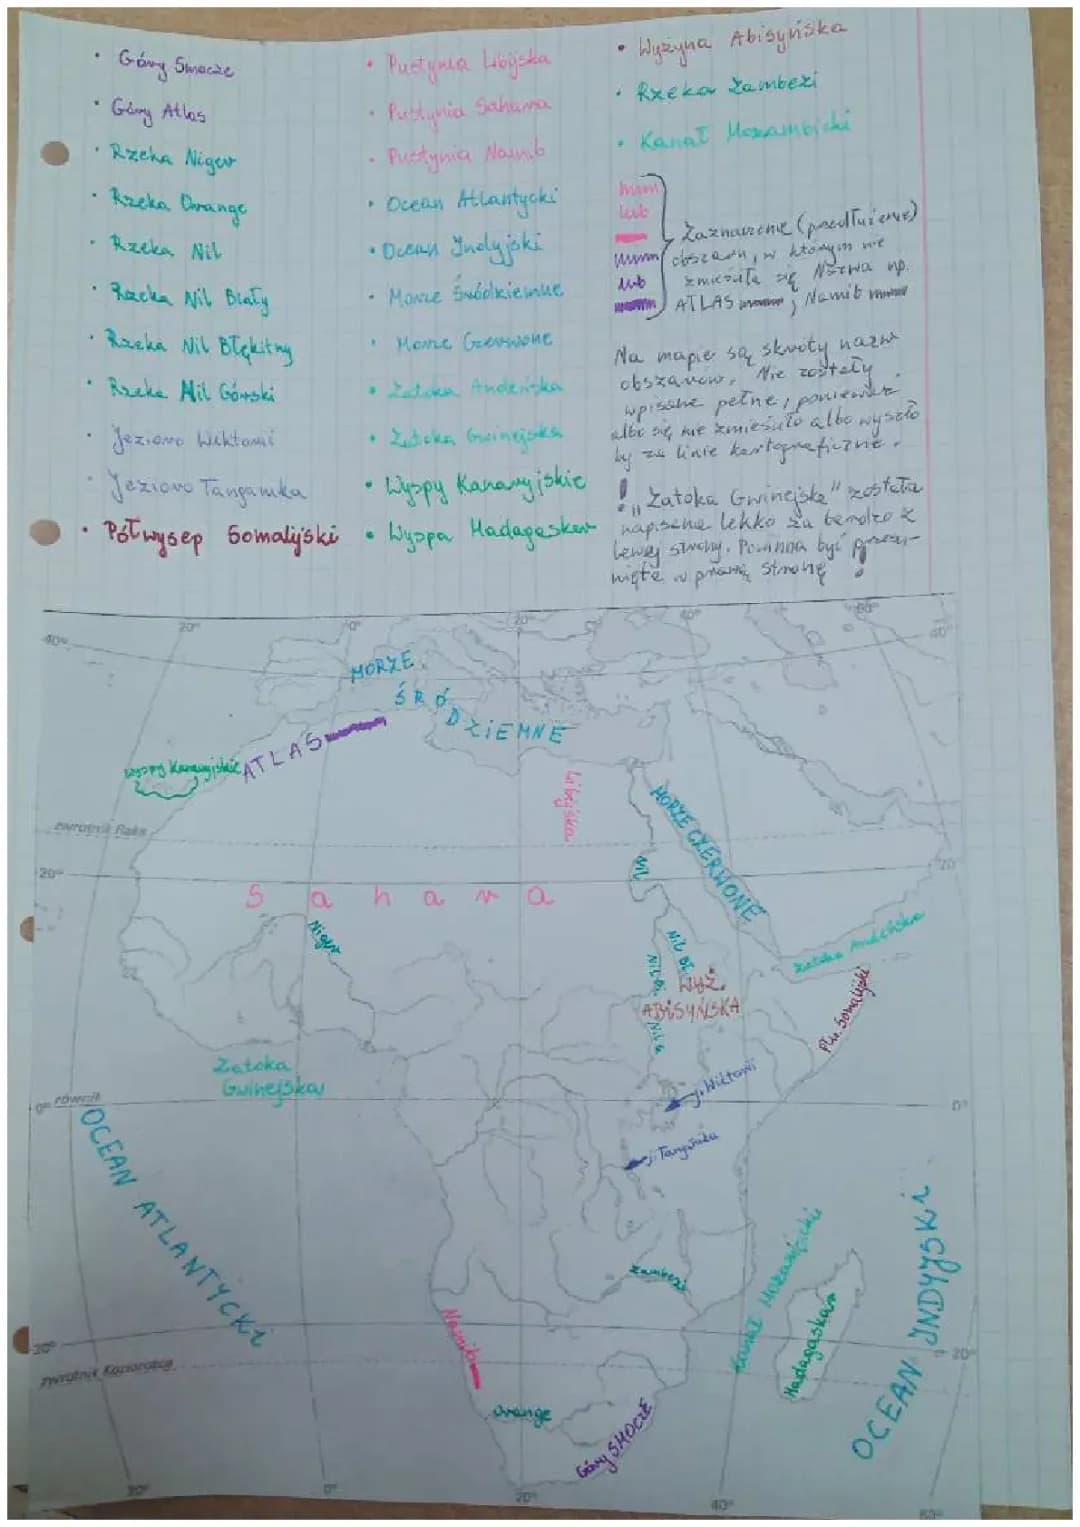 • Góry Smocze
• Góry Atlas
• Rzeka Niger
• Rzeka Orange
• Rzeka Nil
• Rzeka Nil Biały
• Rzeka Nil Błękitny
• Rzeka Nil Górski
• Jezioro Wiktorii
• Jezioro Tanganika
• Półwysep Somalijski
• Pustynia Libijska
• Pustynia Sahara
• Pustynia Namib
• Ocean Atlantycki
• Ocean Indyjski
• Morze Śródziemne
• Morze Czerwone
• Zatoka Andeńska
• Zatoka Gwinejska
• Wyspy Kanaryjskie
• Wyspa Madagaskar
• Wyżyna Abisyńska
• Rzeka Zambezi
• Kanał Mozambicki
lub
lub
Zaznaczenie (przedłużenie)
obszaru, w którym nie
zmieściła się Nazwa np.
ATLAS , Namib
Na mapie są skróty nazw
obszarów. Nie zostały
wpisane pełne, ponieważ
albo się nie zmieściło albo wyszło
by za linie kartograficzne.
! "Zatoka Gwinejska" została
napisana lekko za bardzo z
lewej strony. Powinna być przesu-
nięta w prawą stronę !
40° 20° 0° 20° 40° 60° 40°
MORZE
ŚRÓDZIEMNE
ATLAS
Wyspy Kanaryjskie
Libijska
MORZE CZERWONE
zwrotnik Raka
20°
20°
Nil
Sahara
Niger
Nil Bł.
Nil B.
WYŻ.
ABISYŃSKA
Nil G.
Zatoka Andeńska
Płw. Somalijski
Zatoka
Gwinejska
j. Wiktorii
0° równik
0°
j. Tanganika
OCEAN ATLANTYCKI
Zambezi
Kanał Mozambicki
Madagaskar
OCEAN INDYJSKI
Namib
20°
20°
zwrotnik Koziorożca
Orange
Góry SMOCZE
20° 0° 20° 40° 60°